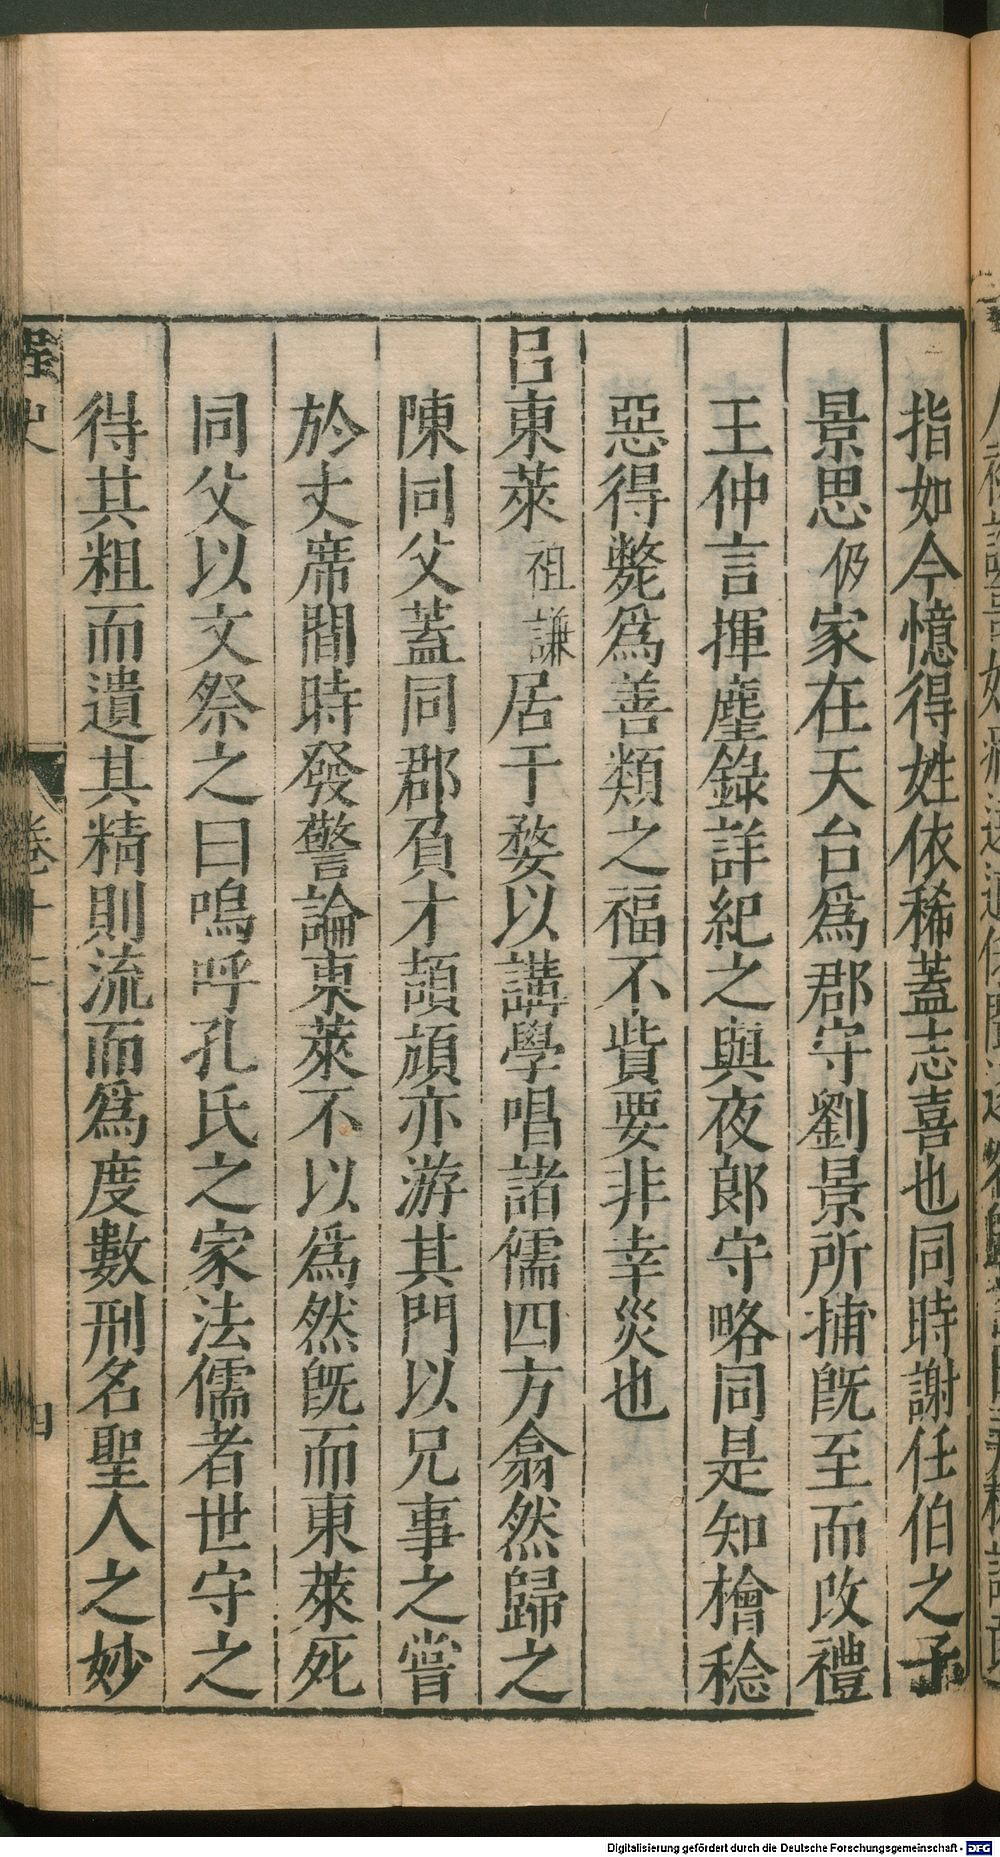 指如今憶得姓依稀蓋志喜也同時謝任伯之子
景思伋家在天台爲郡守劉景所捕旣至而改禮
王仲言揮麈錄詳紀之與夜郎守略同是知檜稔
惡得斃爲善類之福不貲要非幸災也
呂東萊祖謙居于婺以講學唱諸儒四方翕然歸之
陳同父蓋同郡負才頡頏亦游其門以兄事之嘗
於丈席間時發警論東萊不以爲然旣而東萊死
同父以文祭之曰嗚呼孔氏之家法儒者世守之
得其粗而遺其精則流而爲度數刑名聖人之妙
桯史
卷十二
四
Digitalisierung gefördert durch die Deutsche Forschungsgemeinschaft - DFG